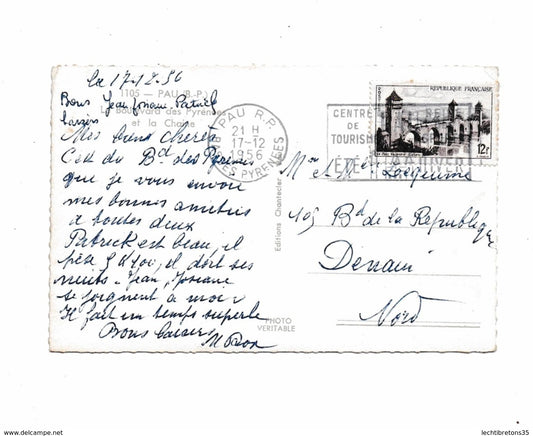 Le 17.12.56
1105 - PAU (B.-P.)
Le Boulevard des Pyrénées
et la Chaîne
Bons
baisers
Mes biens chères
C'est du Bd des Pyrénées
que je vous envoie
mes bonnes amitiés
à toutes deux
Patrick est beau, il
pèse il dort ses
nuits. Jean, Josiane
se joignent à moi
Il fait un temps superbe
Bons Baisers
PAU R.P.
21 H
17-12
1956
BSES PYRENEES
CENTRE
DE
TOURISME
ÉTÉ
REPUBLIQUE FRANÇAISE
POSTES
12F
Editions Chantecler
PHOTO
VERITABLE
Mme et Melle
105 Bd de la République
Denain
Nord
akpool.de
lechtibretons35